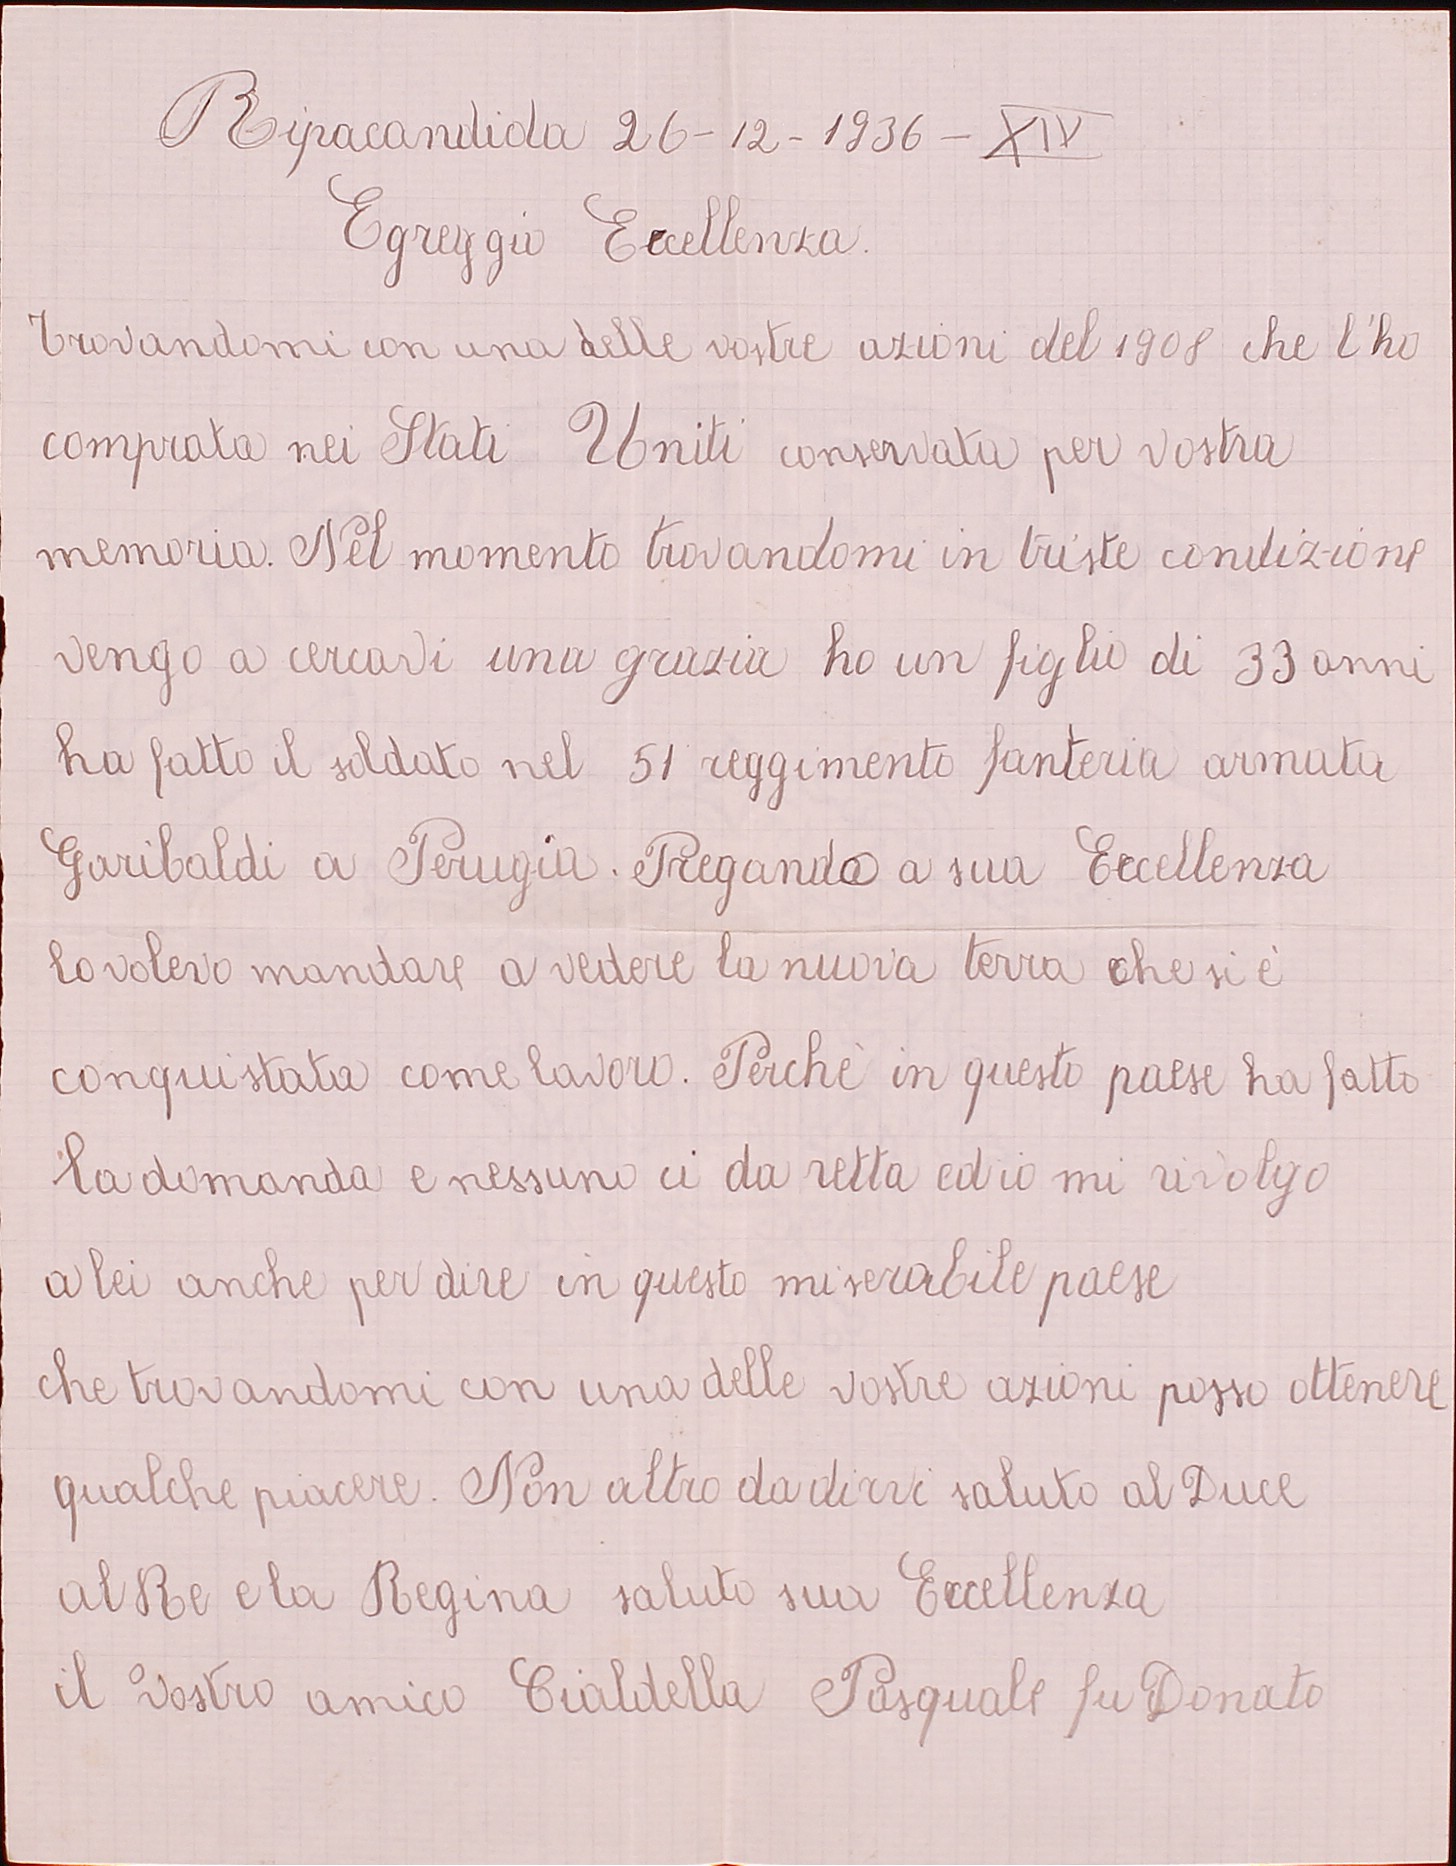 Ripacandida 26-12-1936-XIV
Egreggio Eccellenza.
trovandomi con una delle vostre azioni del 1908 che l'ho
comprata nei Stati Uniti conservata per vostra
memoria. Nel momento trovandomi in triste condizione
vengo a cercavi una grazia ho un figlio di 33 anni
ha fatto il soldato nel 51 reggimento fanteria armata
Garibaldi a Perugia. Pregando a sua Eccellenza
lo volevo mandare a vedere la nuova terra che si è
conquistata come lavoro. Perchè in questo paese ha fatto
la domanda e nessuno ci da retta ed io mi rivolgo
a lei anche per dire in questo miserabile paese
che trovandomi con una delle vostre azioni posso ottenere
qualche piacere. Non altro da dirvi saluto al Duce
al Re e la Regina saluto sua Eccellenza
il vostro amico Cialdella Pasquale fu Donato